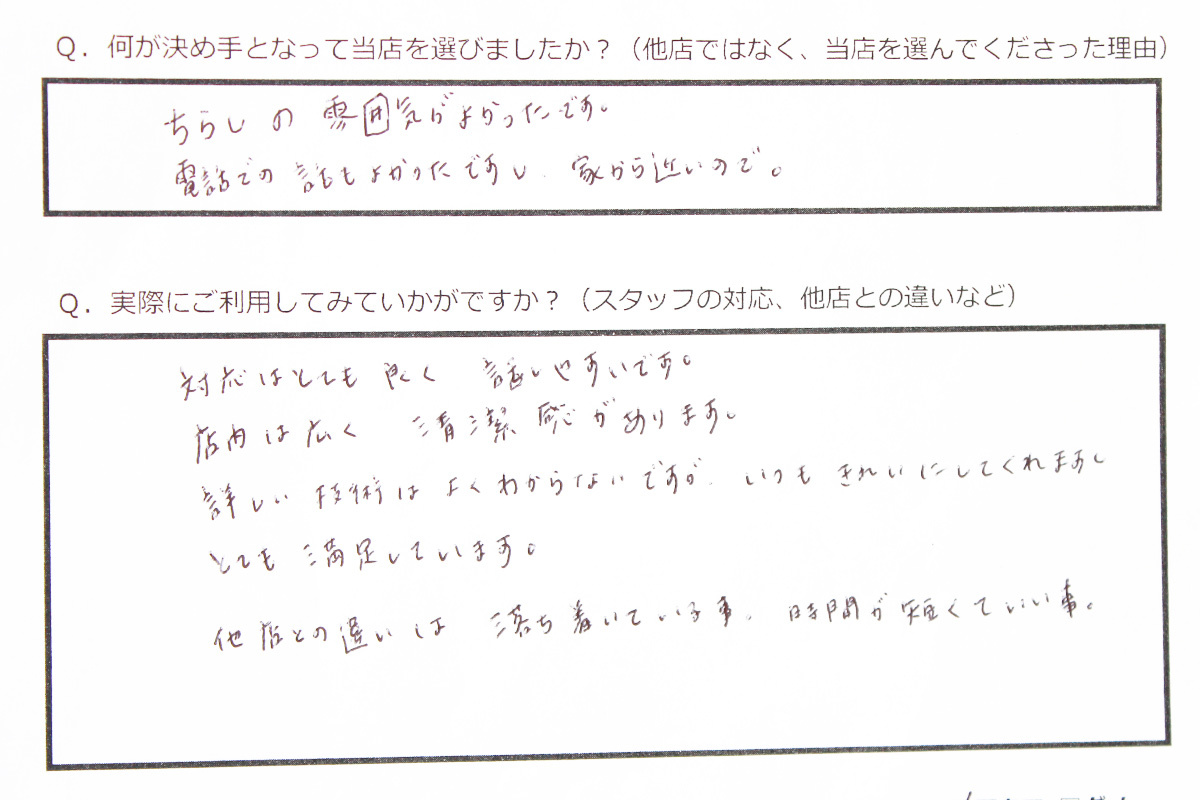 Q．何が決め手となって当店を選びましたか？（他店ではなく、当店を選んでくださった理由）
ちらしの雰囲気がよかったです。
電話での話もよかったですし、家から近いので。
Q．実際にご利用してみていかがですか？（スタッフの対応、他店との違いなど）
対応はとても良く 話しやすいです。
店内は広く 清潔感があります。
詳しい技術はよくわからないですが、いつもきれいにしてくれますし
とても満足しています。
他店との違いは 落ち着いている事、時間が短くていい事。